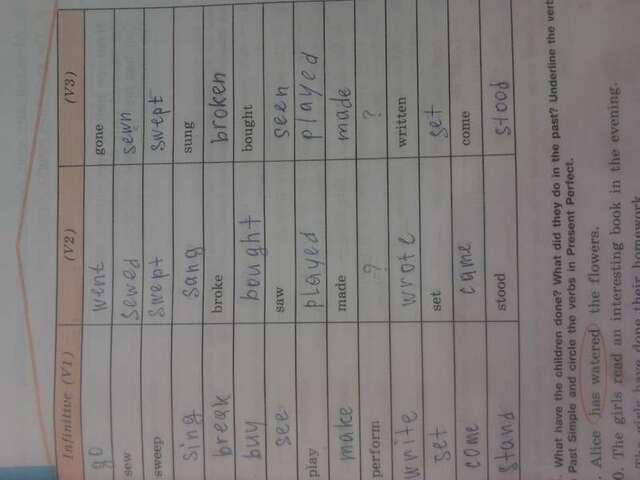 Infinitive (V1) (V2) (V3)
go went gone
sew sewed sewn
sweep swept swept
sing sang sung
break broke broken
buy bought bought
see saw seen
play played played
make made made
perform ? ?
write wrote written
set set set
come came come
stand stood stood
What have the children done? What did they do in the past? Underline the verb
Past Simple and circle the verbs in Present Perfect.
. Alice has watered the flowers.
0. The girls read an interesting book in the evening.
have done their homework